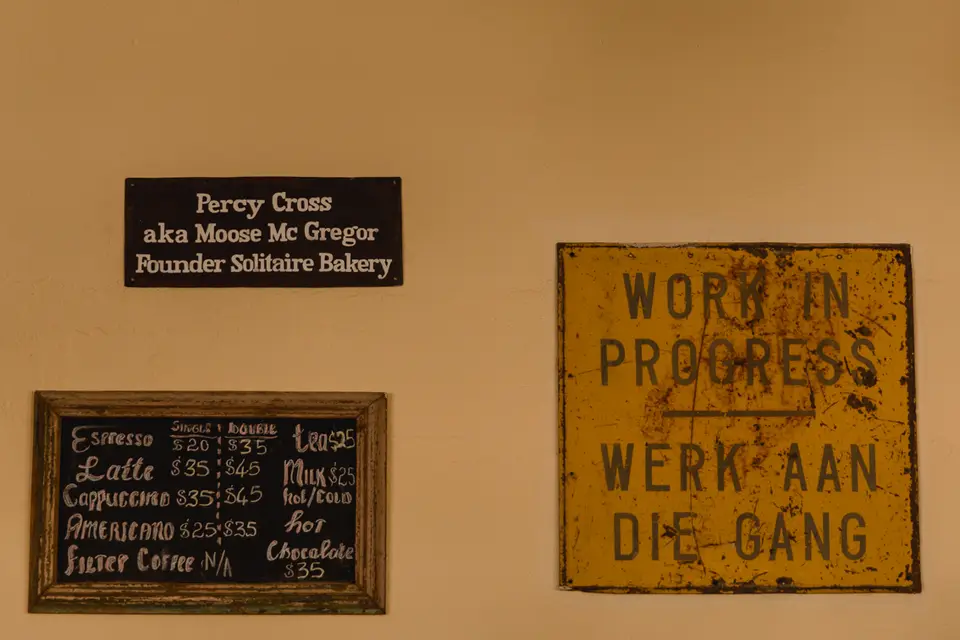 Percy Cross
aka Moose Mc Gregor
Founder Solitaire Bakery
WORK IN
PROGRESS
WERK AAN
DIE GANG
SINGLE DOUBLE
Espresso $20 $35
Latte $35 $45
Cappuccino $35 $45
Americano $25 $35
Filter Coffee N/A
tea $25
Milk $25
hot/cold
hot
Chocolate
$35